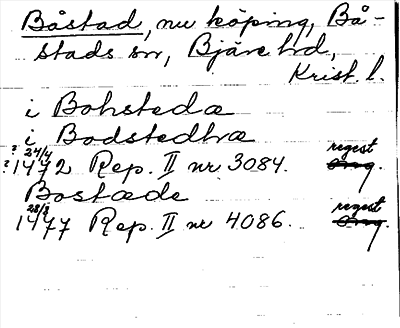 Båstad, nu köping, Bå-
stads sn, Bjäre hd,
Krist. l.
i Bohstedæ
i Bodstedhæ
? 24/4 regest
? 1472 Rep. II nr 3084. Orig.
Bostæde
28/8 regest
1477 Rep. II nr 4086. Orig.